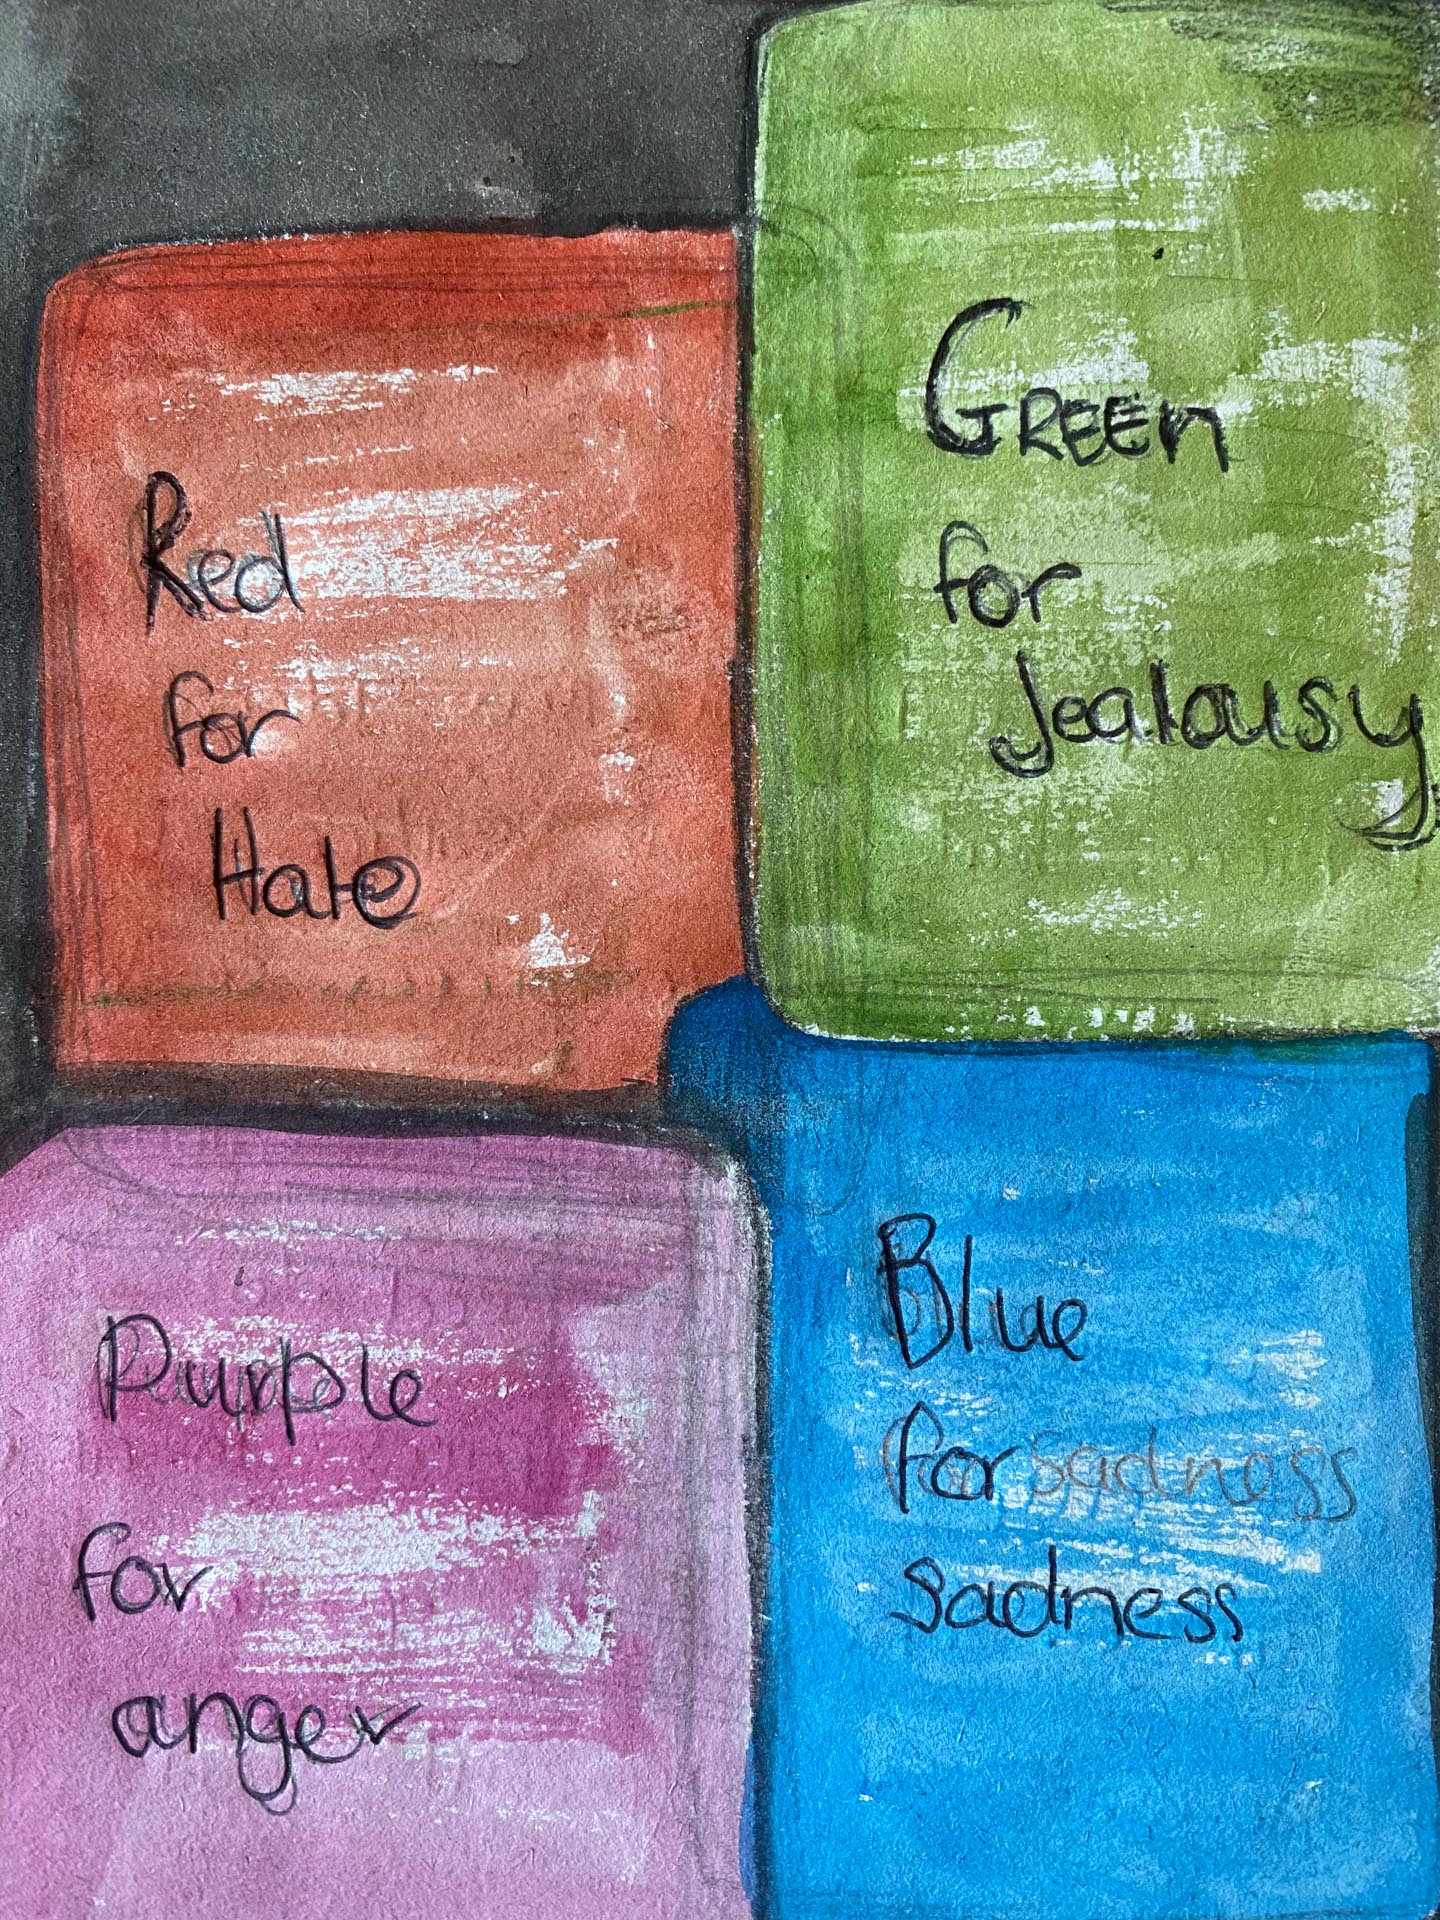 Red
for
Hate
GREEn
for
Jealousy
Purple
for
anger
Blue
for sadness
sadness